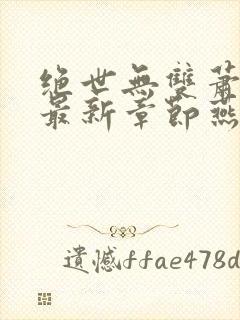 绝世無雙蕭
最新章節燕
遺憾ffae478d